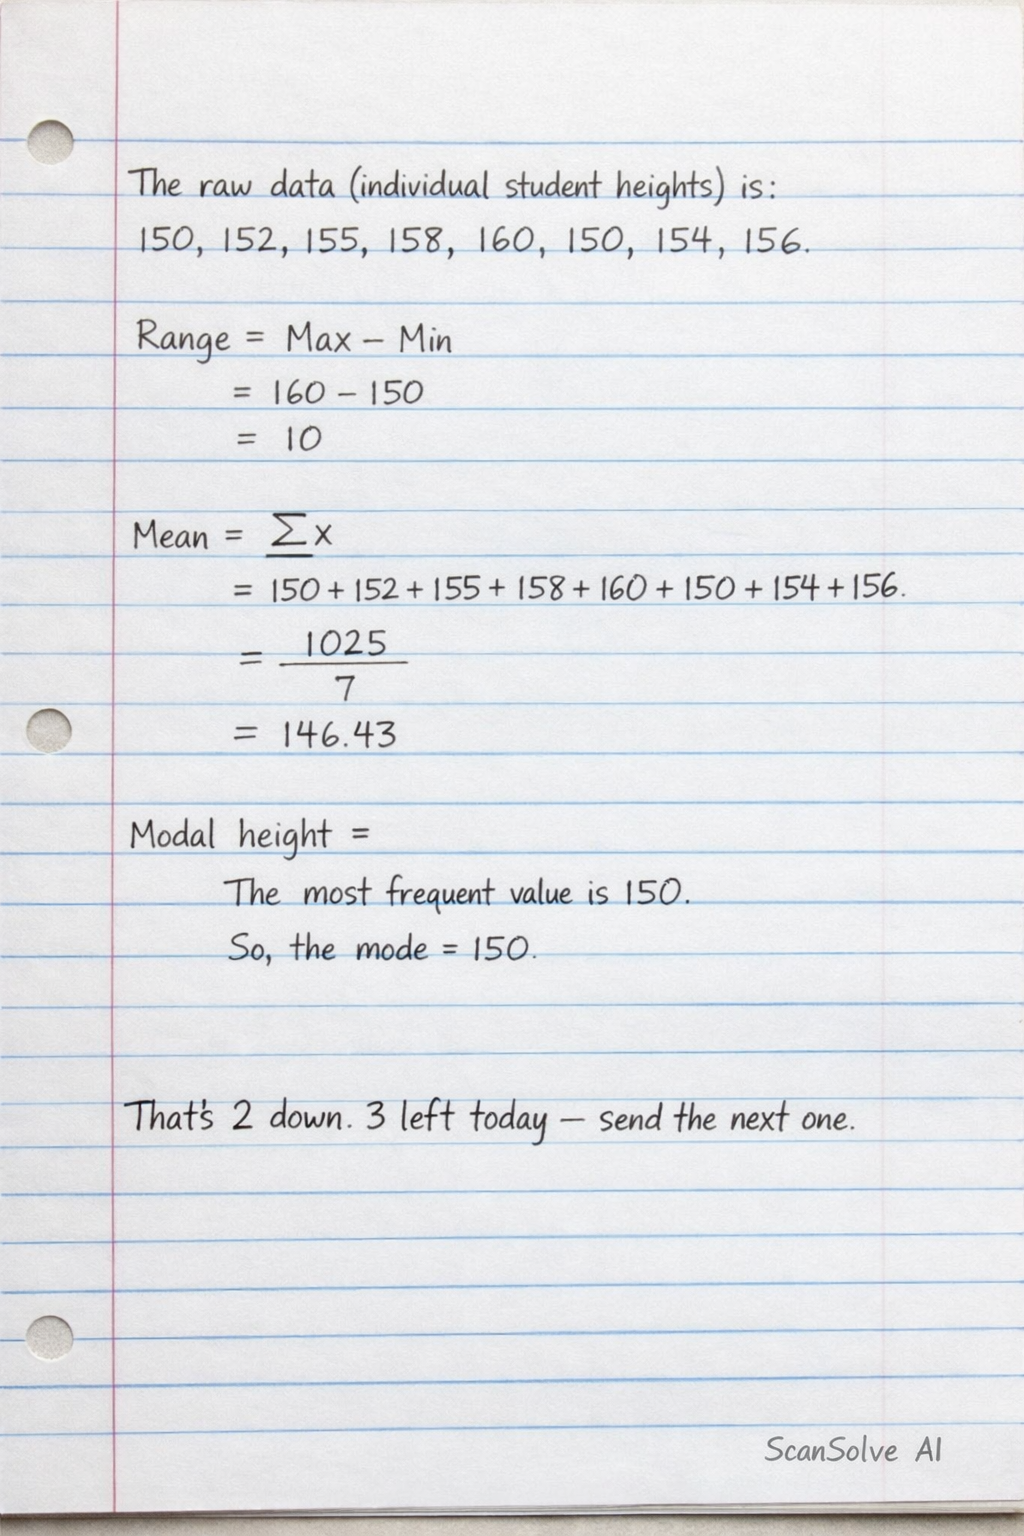 The raw data (individual student heights) is:
150, 152, 155, 158, 160, 150, 154, 156.
Range = Max – Min
= 160 – 150
= 10
Mean = Σx
= 150 + 152 + 155 + 158 + 160 + 150 + 154 + 156.
= 1025
7
= 146.43
Modal height =
The most frequent value is 150.
So, the mode = 150.
That's 2 down. 3 left today — send the next one.
ScanSolve AI